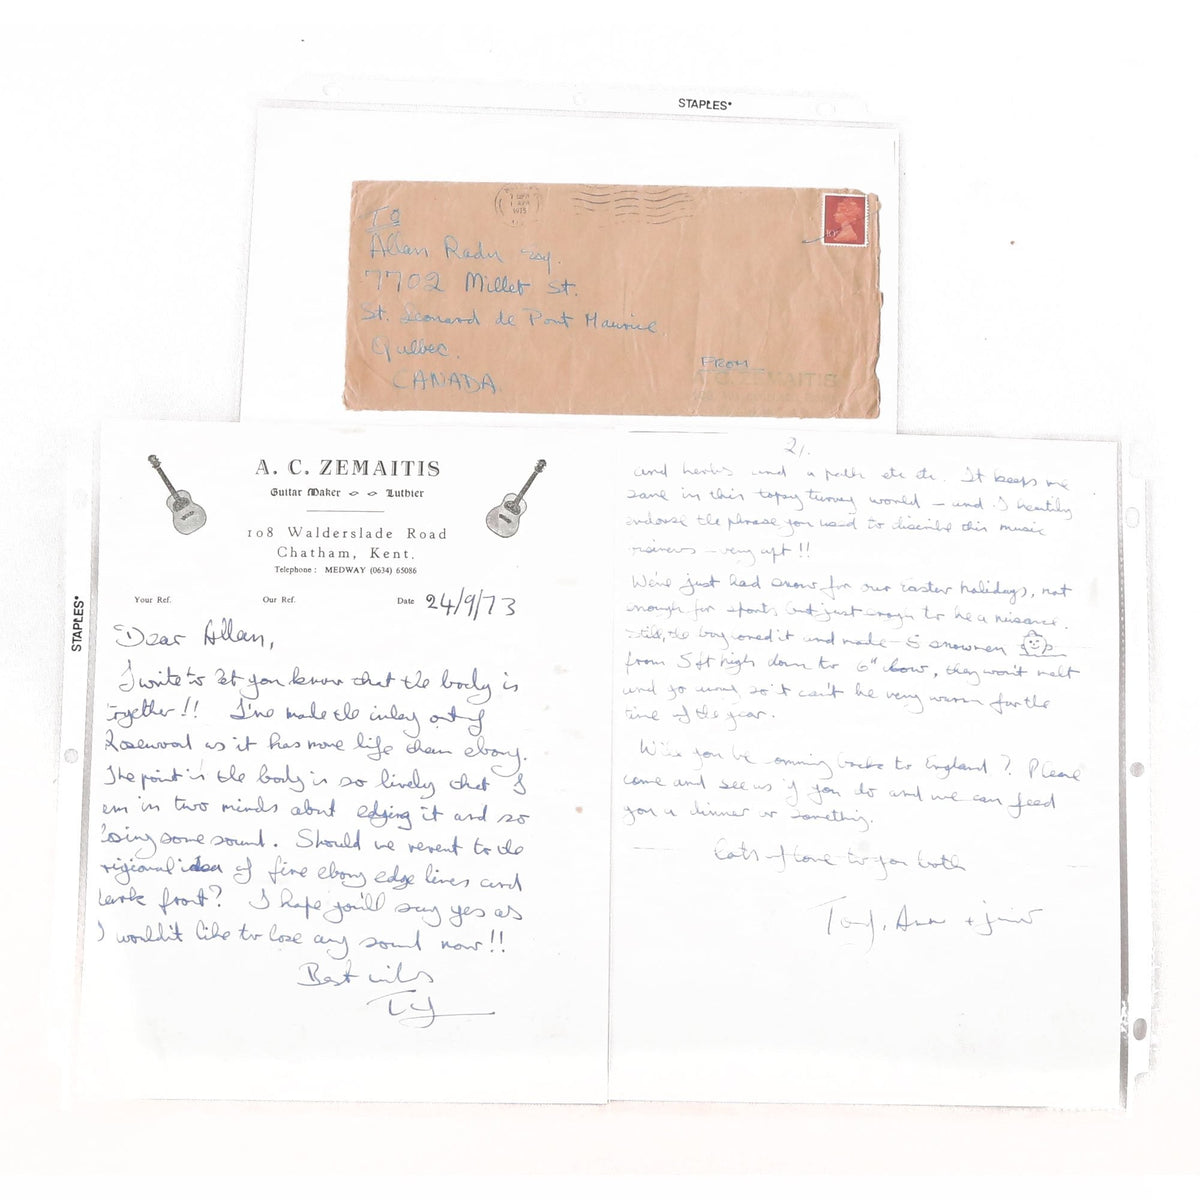 STAPLES
1975
TO
Allan Radu Esq.
7702 Millet St.
St. Leonard de Pont Maurice
Quebec.
CANADA
10P
FROM
A. C. ZEMAITIS
STAPLES
A. C. ZEMAITIS
Guitar Maker Luthier
108 Walderslade Road
Chatham, Kent.
Telephone : MEDWAY (0634) 65086
Your Ref. Our Ref. Date 24/9/73
Dear Allan,
I write to let you know that the body is
together!! I've made the inlay out of
Rosewood as it has more life than ebony.
The point is the body is so lively that I
am in two minds about edging it and so
losing some sound. Should we revert to the
original idea of fine ebony edge lines and
dark front? I hope you'll say yes as
I wouldn't like to lose any sound now!!
Best
Tony
2/.
and herbs and a path etc etc. It keeps me
sane in this topsy turvey world - and I heartily
endorse the phrase you used to describe this music
- very apt!!
We've just had snow for our Easter holidays, not
enough for sports but just enough to be a nuisance.
Still, the boy loved it and made 5 snowmen
from 5ft high down to 6" , they won't melt
and go away so it can't be very warm for the
time of the year.
Will you be coming back to England? Please
come and see us if you do and we can feed
you a dinner or something.
Lots of love to you both
Tony, Ann + junior